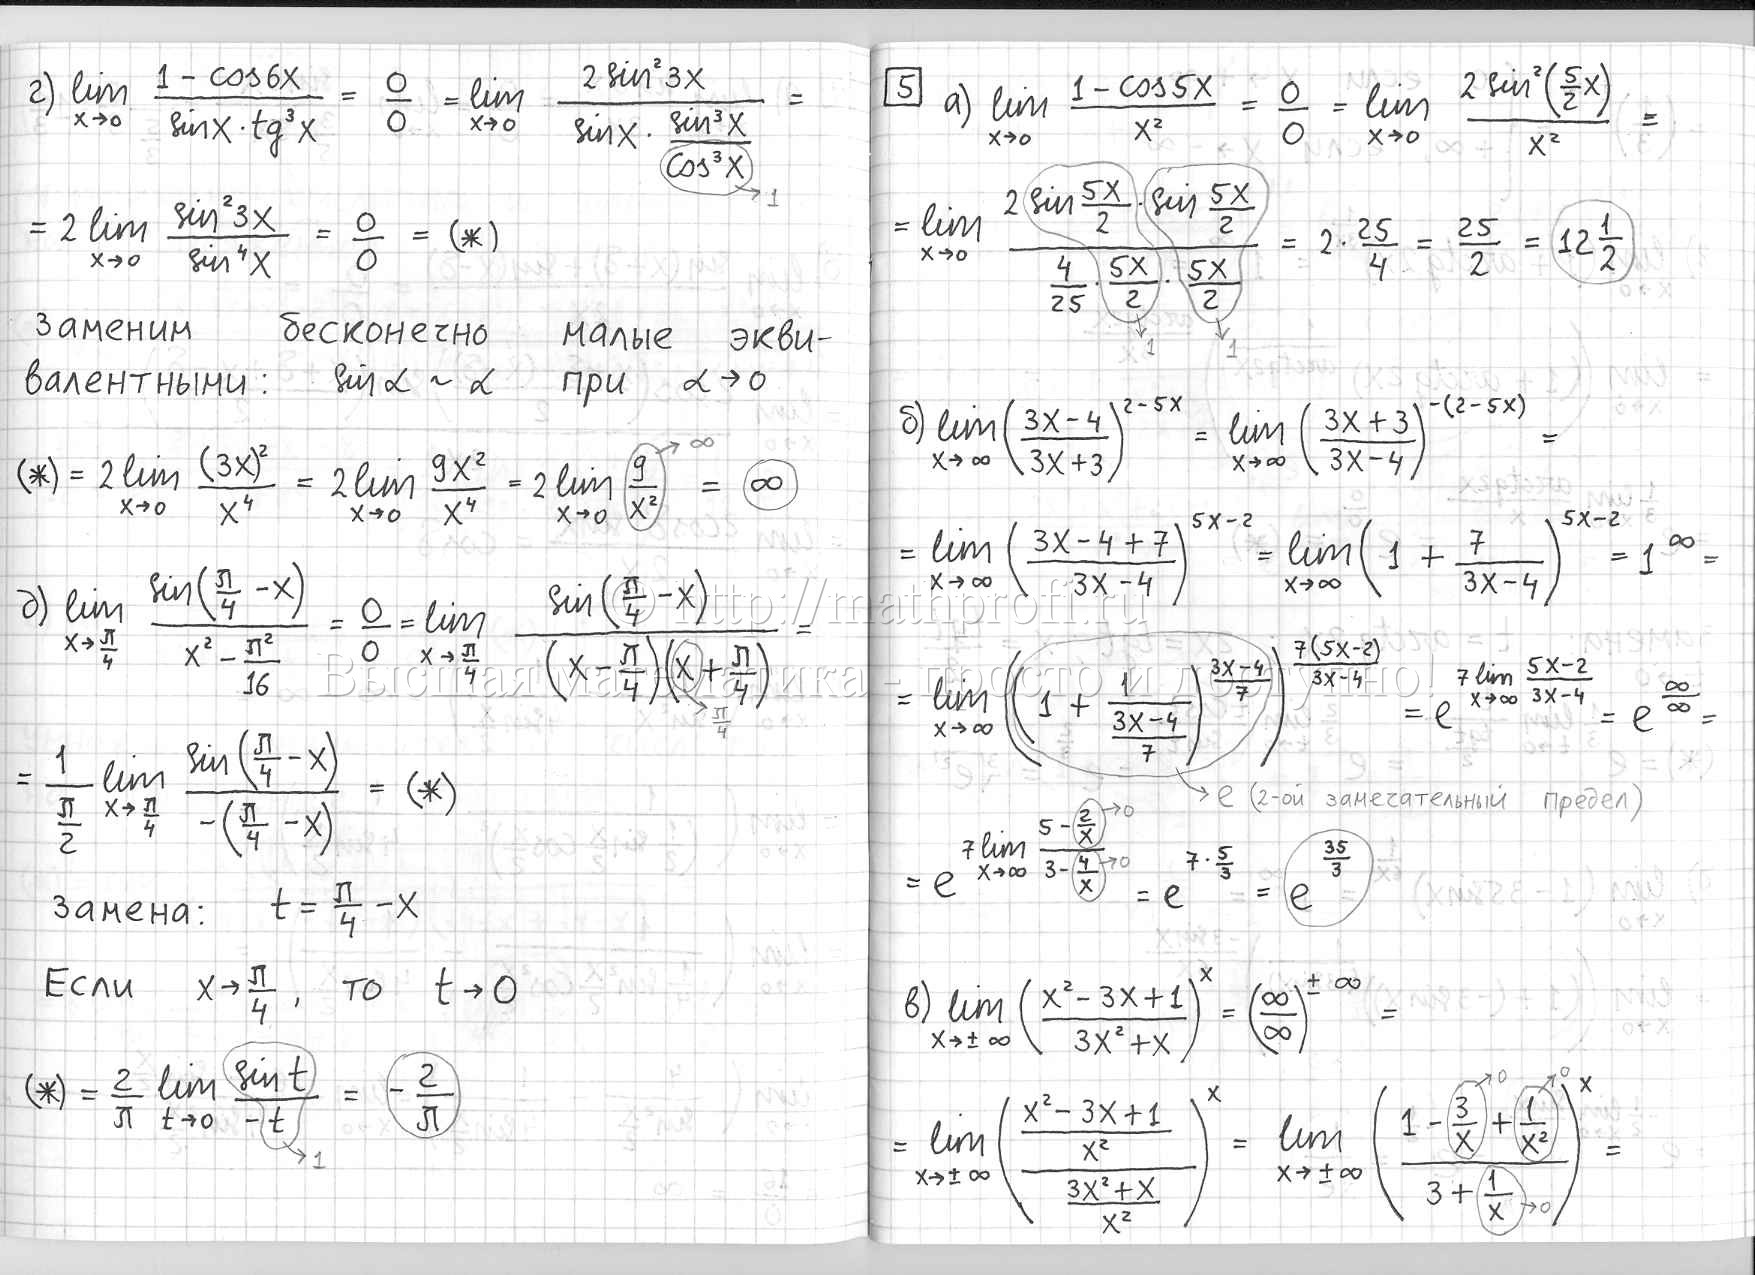 г) lim x→0 (1 − cos6x)/(sinx · tg³x) = 0/0 = lim x→0 (2 sin²3x)/(sinx · (sin³x)/(cos³x)) =
→ 1
= 2 lim x→0 (sin²3x)/(sin⁴x) = 0/0 = (*)
Заменим бесконечно малые экви-
валентными: sin α ~ α при α → 0
(*) = 2 lim x→0 (3x)²/x⁴ = 2 lim x→0 9x²/x⁴ = 2 lim x→0 9/x² = ∞
→ ∞
д) lim x→π/4 sin(π/4 − x)/(x² − π²/16) = 0/0 = lim x→π/4 sin(π/4 − x)/((x − π/4)(x + π/4)) =
→ π/4
= 1/(π/2) lim x→π/4 sin(π/4 − x)/(−(π/4 − x)) = (*)
Замена: t = π/4 − x
Если x → π/4, то t → 0
(*) = 2/π lim t→0 (sin t)/(−t) = −2/π
→ 1
5 а) lim x→0 (1 − cos5x)/x² = 0/0 = lim x→0 (2 sin²(5/2 x))/x² =
= lim x→0 (2 sin 5x/2 · sin 5x/2)/(4/25 · 5x/2 · 5x/2) = 2 · 25/4 = 25/2 = 12 1/2
→ 1 → 1
б) lim x→∞ ((3x−4)/(3x+3))^(2−5x) = lim x→∞ ((3x+3)/(3x−4))^(−(2−5x)) =
= lim x→∞ ((3x−4+7)/(3x−4))^(5x−2) = lim x→∞ (1 + 7/(3x−4))^(5x−2) = 1^∞ =
© http://mathprofi.ru
Высшая математика - просто и доступно!
= lim x→∞ ((1 + 1/((3x−4)/7))^((3x−4)/7))^(7(5x−2)/(3x−4)) = e^(7 lim x→∞ (5x−2)/(3x−4)) = e^(∞/∞) =
→ e (2-ой замечательный предел)
= e^(7 lim x→∞ (5 − 2/x)/(3 − 4/x)) = e^(7·5/3) = e^(35/3)
→ 0 → 0
в) lim x→±∞ ((x² − 3x + 1)/(3x² + x))^x = (∞/∞)^(±∞) =
= lim x→±∞ (((x² − 3x + 1)/x²)/((3x² + x)/x²))^x = lim x→±∞ ((1 − 3/x + 1/x²)/(3 + 1/x))^x =
→ 0 → 0 → 0